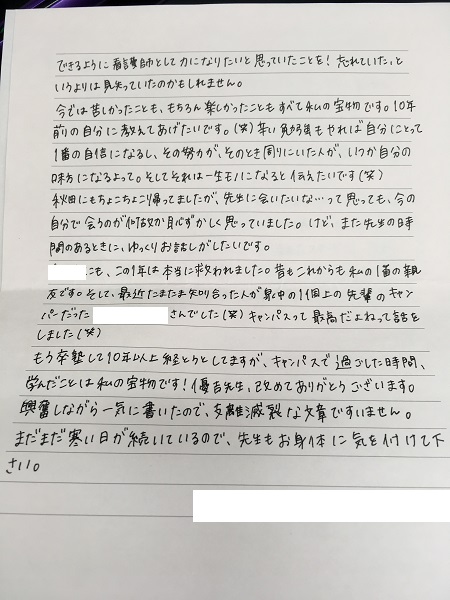 できるように看護師として力になりたいと思っていたことを！忘れていた、と
いうよりは見失っていたのかもしれません。
今では苦しかったことも、もちろん楽しかったこともすべて私の宝物です。10年
前の自分に教えてあげたいです。(笑)辛い勉強もやれば自分にとって
1番の自信になるし、その努力が、そのとき周りにいた人が、いつか自分の
味方になるよって。そしてそれは一生モノになると伝えたいです(笑)
秋田にもちょこちょこ帰ってましたが、先生に会いたいな…って思っても、今の
自分で会うのが何故か恥ずかしく思っていました。けど、また先生の時
間のあるときに、ゆっくりお話しがしたいです。
にも、この1年は本当に救われました。昔もこれからも私の1番の親
友です。そして、最近たまたま知り合った人が泉中の1個上の先輩のキャン
パーだった さんでした(笑)キャンパスって最高だよねって話を
しました(笑)
もう卒塾して10年以上経とうとしてますが、キャンパスで過ごした時間、
学んだことは私の宝物です！優吉先生、改めてありがとうございます。
興奮しながら一気に書いたので、支離滅裂な文章ですいません。
まだまだ寒い日が続いているので、先生もお身体に気を付けて下
さい。